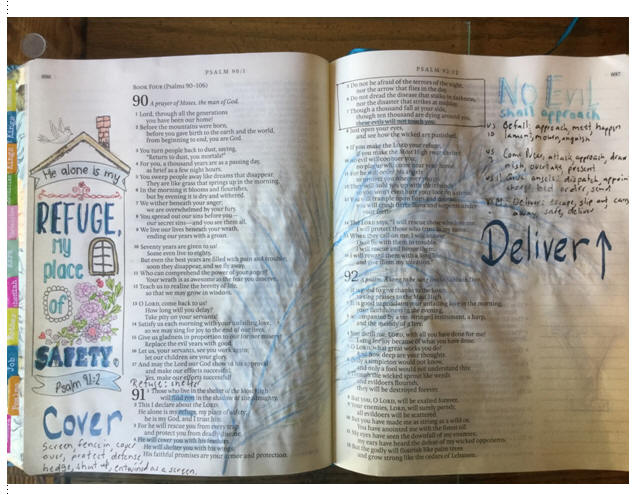 PSALM 90:1
BOOK FOUR (Psalms 90–106)
90 A prayer of Moses, the man of God.
1 Lord, through all the generations
you have been our home!
2 Before the mountains were born,
before you gave birth to the earth and the world,
from beginning to end, you are God.
3 You turn people back to dust, saying,
"Return to dust, you mortals!"
4 For you, a thousand years are as a passing day,
as brief as a few night hours.
5 You sweep people away like dreams that disappear.
They are like grass that springs up in the morning.
6 In the morning it blooms and flourishes,
but by evening it is dry and withered.
7 We wither beneath your anger;
we are overwhelmed by your fury.
8 You spread out our sins before you—
our secret sins—and you see them all.
9 We live our lives beneath your wrath,
ending our years with a groan.
10 Seventy years are given to us!
Some even live to eighty.
But even the best years are filled with pain and trouble;
soon they disappear, and we fly away.
11 Who can comprehend the power of your anger?
Your wrath is as awesome as the fear you deserve.
12 Teach us to realize the brevity of life,
so that we may grow in wisdom.
13 O LORD, come back to us!
How long will you delay?
Take pity on your servants!
14 Satisfy us each morning with your unfailing love,
so we may sing for joy to the end of our lives.
15 Give us gladness in proportion to our former misery!
Replace the evil years with good.
16 Let us, your servants, see you work again;
let our children see your glory.
17 And may the Lord our God show us his approval
and make our efforts successful.
Yes, make our efforts successful!
Refuge: shelter
91
1 Those who live in the shelter of the Most High
will find rest in the shadow of the Almighty.
2 This I declare about the LORD:
He alone is my refuge, my place of safety;
he is my God, and I trust him.
3 For he will rescue you from every trap
and protect you from deadly disease.
4 He will cover you with his feathers.
He will shelter you with his wings.
His faithful promises are your armor and protection.
He alone is my
REFUGE,
my
place
of
SAFETY.
Psalm 91:2
Cover
Screen, fence in, cover
over, protect, defense,
hedge, shut up, entwined as a screen.
PSALM 92:12
5 Do not be afraid of the terrors of the night,
nor the arrow that flies in the day.
6 Do not dread the disease that stalks in darkness,
nor the disaster that strikes at midday.
7 Though a thousand fall at your side,
though ten thousand are dying around you,
these evils will not touch you.
8 Just open your eyes,
and see how the wicked are punished.
9 If you make the LORD your refuge,
if you make the Most High your shelter,
10 no evil will conquer you;
no plague will come near your home.
11 For he will order his angels
14 The LORD says, "I will rescue those who love me.
I will protect those who trust in my name.
15 When they call on me, I will answer;
I will be with them in trouble.
I will rescue and honor them.
16 I will reward them with a long life
and give them my salvation."
92 A psalm. A song to be sung on the Sabbath Day.
1 It is good to give thanks to the LORD,
to sing praises to the Most High.
2 It is good to proclaim your unfailing love in the morning,
your faithfulness in the evening,
3 accompanied by a ten-stringed instrument, a harp,
and the melody of a lyre.
4 You thrill me, LORD, with all you have done for me!
I sing for joy because of what you have done.
5 O LORD, what great works you do!
And how deep are your thoughts.
6 Only a simpleton would not know,
and only a fool would not understand this:
7 Though the wicked sprout like weeds
and evildoers flourish,
they will be destroyed forever.
8 But you, O LORD, will be exalted forever.
9 Your enemies, LORD, will surely perish;
all evildoers will be scattered.
10 But you have made me as strong as a wild ox.
You have anointed me with the finest oil.
11 My eyes have seen the downfall of my enemies;
my ears have heard the defeat of my wicked opponents.
12 But the godly will flourish like palm trees
and grow strong like the cedars of Lebanon.
NO EVIL
shall approach
Befall: approach, meet, happen
attack, draw
present
angels: dispatch, appoint
order, send
Deliver: escape, slip out, carry
away safe, deliver
Deliver